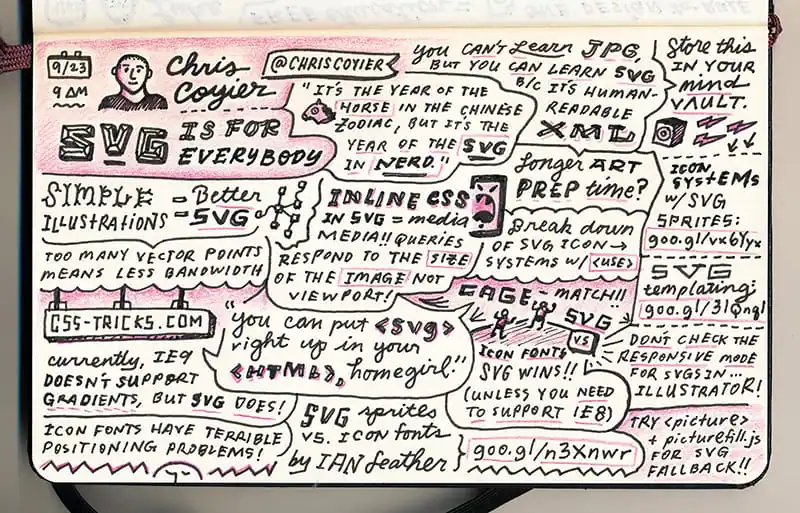 9/23
9 AM
Chris
Coyier
SVG IS FOR
EVERYBODY
@CHRISCOYIER
"IT'S THE YEAR OF THE
HORSE IN THE CHINESE
ZODIAC, BUT IT'S THE
YEAR OF THE SVG
IN NERD."
you CAN'T Learn JPG,
BUT YOU CAN LEARN SVG
B/C IT'S HUMAN-
READABLE
XML
Store this
IN YOUR
mind
VAULT.
SIMPLE
ILLUSTRATIONS = Better
SVG
TOO MANY VECTOR POINTS
MEANS LESS BANDWIDTH
INLINE CSS
IN SVG = media
MEDIA!! QUERIES
RESPOND TO THE SIZE
OF THE IMAGE NOT
VIEWPORT!
Longer ART
PREP time?
Break down
OF SVG ICON →
SYSTEMS W/ <USE>
ICON
SYSTEMS
W/ SVG
SPRITES:
goo.gl/vx6Yyx
SVG
templating:
goo.gl/31Qngl
CSS-TRICKS.COM
currently, IE9
DOESN'T SUPPORT
GRADIENTS, BUT SVG DOES!
ICON FONTS HAVE TERRIBLE
POSITIONING PROBLEMS!
"you can put <svg>
right up in your
<HTML>, homegirl."
CAGE-MATCH!!
SVG
VS
ICON FONTS
SVG WINS!!
(UNLESS YOU NEED
TO SUPPORT IE8)
DON'T CHECK THE
RESPONSIVE MODE
FOR SVGS IN...
ILLUSTRATOR!
SVG sprites
VS. ICON fonts
by IAN feather
goo.gl/n3Xnwr
TRY <picture>
+ picturefill.js
FOR SVG
FALLBACK!!